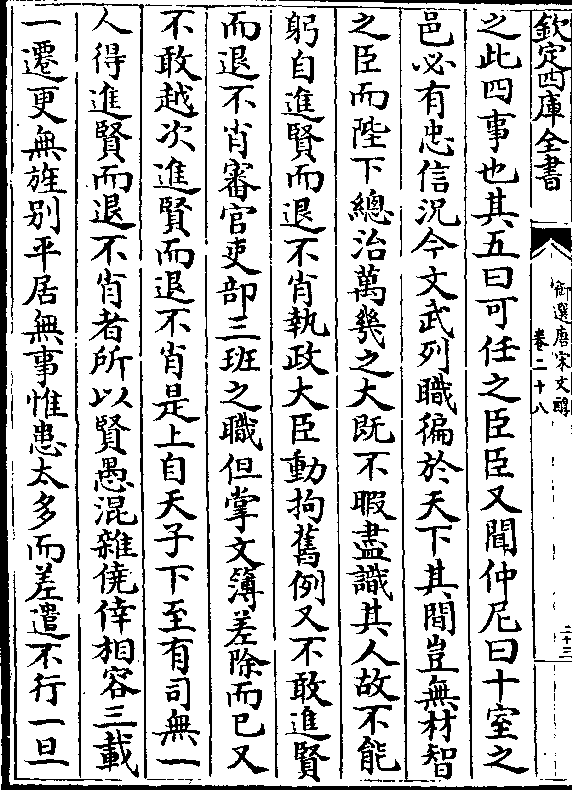 欽定四庫全書
御選唐宋文醇
卷二十八
二十三
之此四事也其五曰可任之臣臣又聞仲尼曰十室之
邑必有忠信況今文武列職徧於天下其間豈無材智
之臣而陛下總治萬幾之大既不暇盡識其人故不能
躬自進賢而退不肖執政大臣動拘舊例又不敢進賢
而退不肖審官吏部三班之職但掌文簿差除而已又
不敢越次進賢而退不肖是上自天子下至有司無一
人得進賢而退不肖者所以賢愚混雜僥倖相容三載
一遷更無旌别平居無事惟患太多而差遣不行一旦